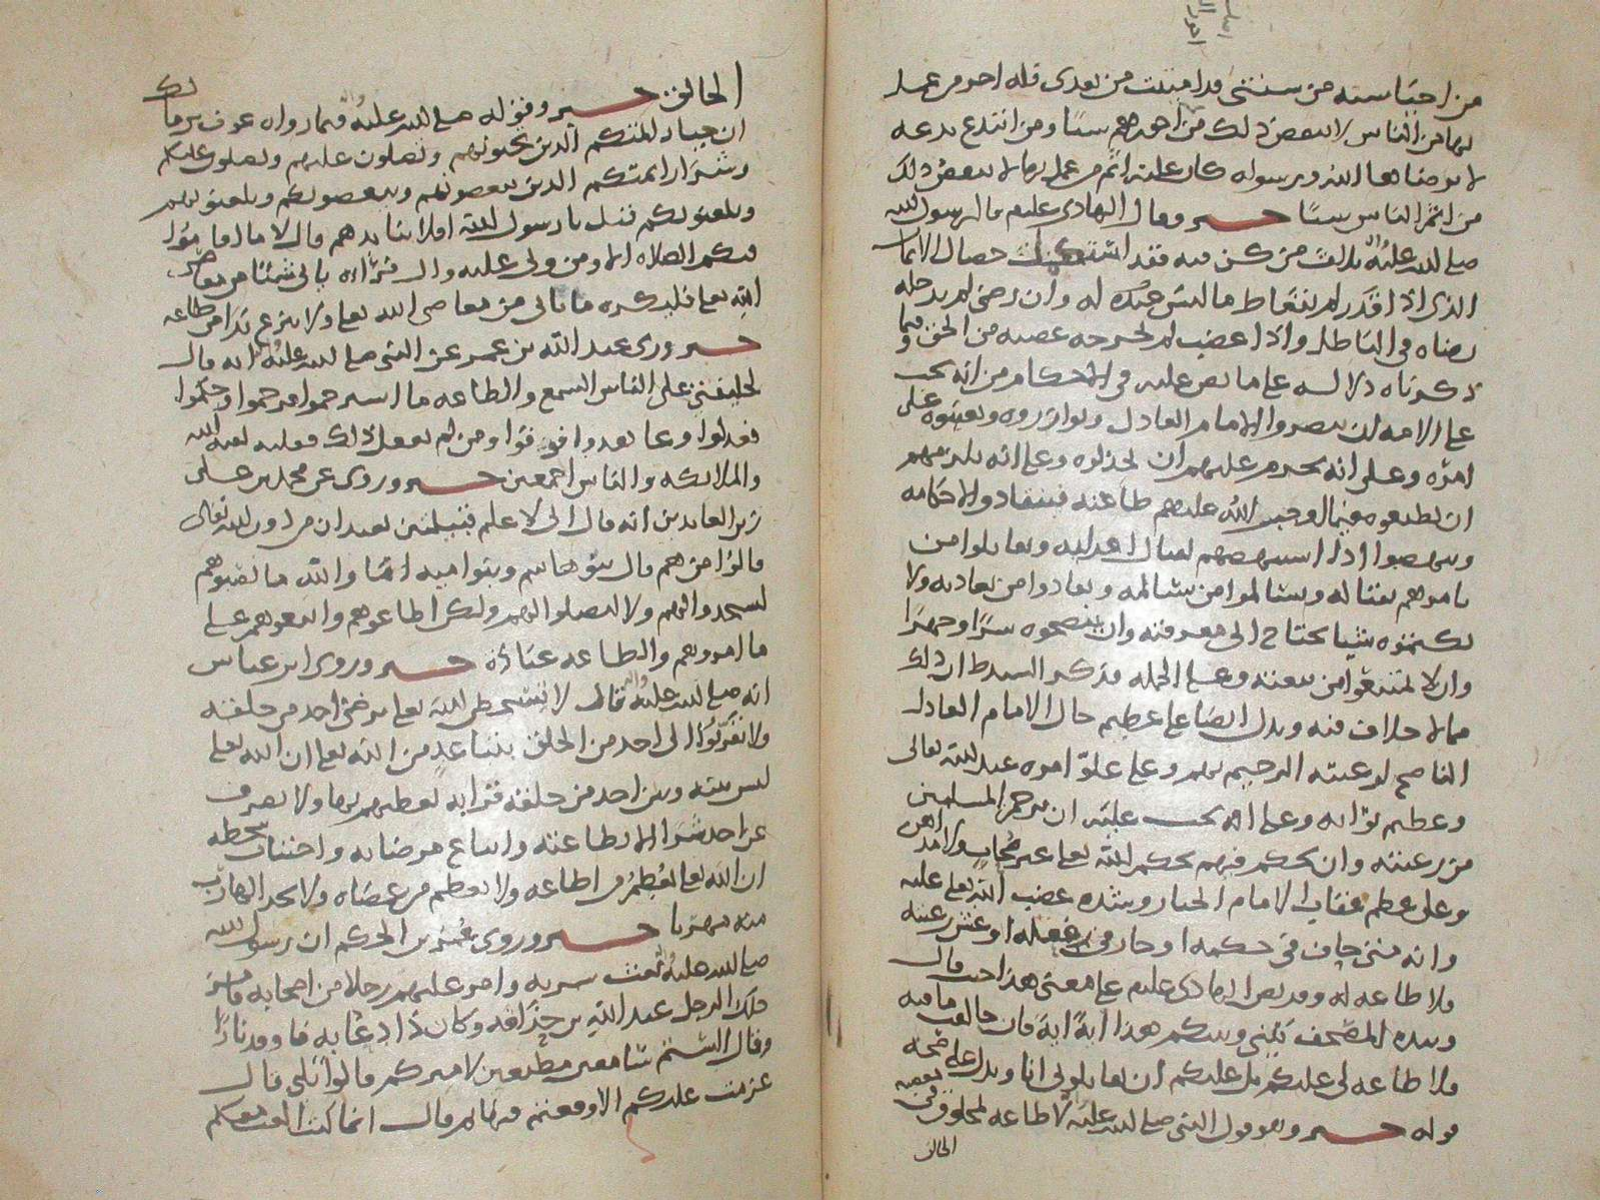 من احيا سنه من سنتي قد اميتت من بعدي فله اجر من عمل
بها من الناس لا ينقص ذلك من اجورهم شيئا ومن ابتدع بدعه
لا يرضاها الله ورسوله كان عليه اثم من عمل بها لا ينقص ذلك
من اثم الناس شيئا خبر وقال الهادي عليلم قال رسول الله
صلى الله عليه واله ثلاث من كن فيه فقد استكمل خصال الايمان
الذي اذا قدر لم يتعاط ما ليس له وان رضي لم يدخله
رضاه في الباطل واذا غضب لم يخرجه غضبه من الحق وفيما
ذكرناه دلاله على ما نص عليه في الاحكام من انه يجب
على الامه ان ينصروا الامام العادل ويوازروه ويعينوه على
امره وعلى انه يحرم عليهم ان يخذلوه وعلى انه يلزمهم
ان يطيعوه فيما اوجب الله عليهم طاعته فينقادوا لاحكامه
وينهضوا اذا استنهضهم لقتال اعدايه ويقاتلوا من
يامرهم بقتاله ويسالموا من سالمه ويعادوا من يعاديه ولا
يكتموه شيا يحتاج الى معرفته وان ينصحوه سرا وجهرا
وان لا يمتنعوا من بيعته وعلى الجمله وذكر السيد ط ان ذلك
مما لا خلاف فيه ويدل ايضا على عظيم حال الامام العادل
الناصح لرعيته الرحيم بهم وعلى علو امره عند الله تعالى
وعظيم ثوابه وعلى انه يجب عليه ان يرحم المسلمين
من رعيته وان يحكم فيهم بحكم الله تعلى غير محاب ولا مداهن
وعلى عظم عقاب الامام الجبار وشده غضب الله تعلى عليه
وانه متى حاف في حكمه او جار في فعله او غش رعيته
فلا طاعه له وقد نص الهادي عليلم على معنى هذا حيث قال
وبيده المصحف بيني وبينكم هذا ايه ايه فان خالفت ما فيه
فلا طاعه لي عليكم بل عليكم ان تقاتلوني انا ويدل على صحه
قوله خبر وهو قول النبي صلى الله عليه لا طاعه لمخلوق في معصيه
الخالق
الخالق خبر وقوله صلى الله عليه واله فيما رواه عوف بن مالك
ان خيار ائمتكم الذين تحبونهم وتصلون عليهم ويصلون عليكم
وشرار ائمتكم الذين تبغضونهم ويبغضونكم وتلعنونهم
ويلعنونكم قيل يا رسول الله افلا ننابذهم قال لا ما اقاموا
فيكم الصلاه الا ومن ولي عليه وال فراه ياتي شيئا من معاصي
الله تعلى فليكره ما ياتي من معاصي الله تعلى ولا ينزع يدا من طاعه
خبر وروى عبد الله بن عمر عن النبي صلى الله عليه واله انه قال
لخليفتي على الناس السمع والطاعه ما استرحموا فرحموا وحكموا
فعدلوا وعاهدوا فوفوا ومن لم يفعل ذلك فعليه لعنه الله
والملائكه والناس اجمعين خبر وروى عن محمد بن علي
زين العابدين انه قال اني لا علم
قالوا من هم قال بنو هاشم وبنو اميه اما والله ما نصبوهم
ليسجدوا لهم ولا ليصلوا لهم ولكن اطاعوهم واتبعوهم على
ما امروهم والطاعه عباده خبر وروى ابن عباس
انه صلى الله عليه واله قال لا تسخطن الله تعلى برضى احد من خلقه
ولا تقربوا الى احد من الخلق بتباعد من الله تعلى ان الله تعلى
ليس بينه وبين احد من خلقه قرابه يعطيهم بها ولا يصرف
عن احد شرا الا بطاعته واتباع مرضاته واجتناب سخطه
ان الله تعلى يعظم من اطاعه ولا يعظم من عصاه ولا يجد الهارب
منه مهربا خبر وروى عمر بن الحكم ان رسول الله
صلى الله عليه واله بعث سريه وامر عليهم رجلا من اصحابه
ذلك الرجل عبد الله بن حذافه وكان ذا دعابه فاوقد نارا
وقال الستم سامعين مطيعين لاميركم قالوا بلى قال
عزمت عليكم الا وقعتم فيها ثم قال انما كنت العب معكم